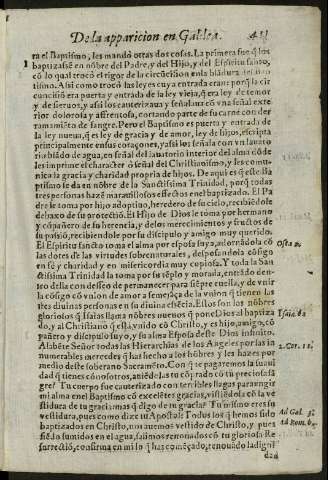 De la apparicion en Galilea. 411
ra el Baptismo, les mandó otras dos cosas. La primera fue q̃ los
1 baptizassẽ en nõbre del Padre, y del Hijo, y del Espiritu santo,
cõ lo qual trocó el rigor de la circũcisiõ en la blãdura del bau
tismo. Assi como trocò las leyes cuya entrada erã: porq̃ la cir
concisiõ era puerta y entrada de la ley vieja, q̃ era ley de temor
y de siervos, y assi los cauterizaua y señalaua cõ vna señal exte
rior dolorosa y affrentosa, cortando parte de su carne con der
ramamiẽto de sangre. Pero el Baptismo es puerta y entrada de
la ley nueua, q̃ es ley de gracia y de amor, ley de hijos, escripta
principalmente en sus coraçones, y assi los señala con vn lauato
rio blãdo de agua, en señal del lauatorio interior del alma dõde
les imprime el character ò señal del Christianismo, y les comu
nica la gracia y charidad propria de hijos. De aqui es q̃ este Ba
ptismo se da en nõbre de la Sanctissima Trinidad, porq̃ todas
tres personas hazẽ marauillosos effectos en el baptizado. El Pa
dre le toma por hijo adoptiuo, heredero de su cielo, recibiẽdole
debaxo de su protectiõ. El Hijo de Dios le toma por hermano
y cõpañero de su herencia, y de los merecimientos y fructos de
su passiõ, recibiendole por su discipulo y amigo muy querido.
El Espiritu sancto toma el alma por esposa suya, adornãdola cõ
las dotes de las virtudes sobrenaturales, desposandola cõsigo
en fe y charidad y en misericordia muy copiosa. Y toda la San
ctissima Trinidad la toma por su tẽplo y morada, entrãdo den
tro della con desseo de permanecer para siẽpre en ella, y de vnir
la cõsigo cõ vnion de amor a semejãça de la vniõn q̃ tienen las
tres diuinas personas en su diuina essẽcia. Estos son los nõbres
gloriosos q̃ Isaias llama nõbres nueuos q̃ pone Dios al baptiza
do, y al Christiano q̃ està vnido cõ Christo, y es hijo, amigo, cõ
pañero y discipulo suyo, y su alma Esposa deste Dios infinito.
Alabẽte Señor todas las Hierarchias de los Angeles por las in
numerables mercedes q̃ has hecho a los hõbres y les hazes por
medio deste soberano Sacramẽto. Con q̃ te pagaremos la suaui
dad q̃ tienes cõ nosotros, auiẽdola tu cõprado cõ tu preciosa sã
gre? Tu cuerpo fue cauterizado con terribles llagas para vngir
mi alma en el Baptismo cõ excelẽtes gracias, vistiẽdola cõ la ve
stidura de tu gracia: mas q̃ digo de tu gracia? Tu mismo eres su
vestidura, pues como dize tu Apostol: Todos los q̃ hemos sido
baptizados en Christo, nos auemos vestido de Christo, y pues
siẽdo sumidos en el agua, salimos renouados cõ tu gloriosa Re
surrectiõ, confirma en mi lo q̃ has començado, renouãdo la digni
dad
Osee 2.
Isaie. 62
2. Cor. 11.
Ad Gal. 3.
Ad Rom. 6.